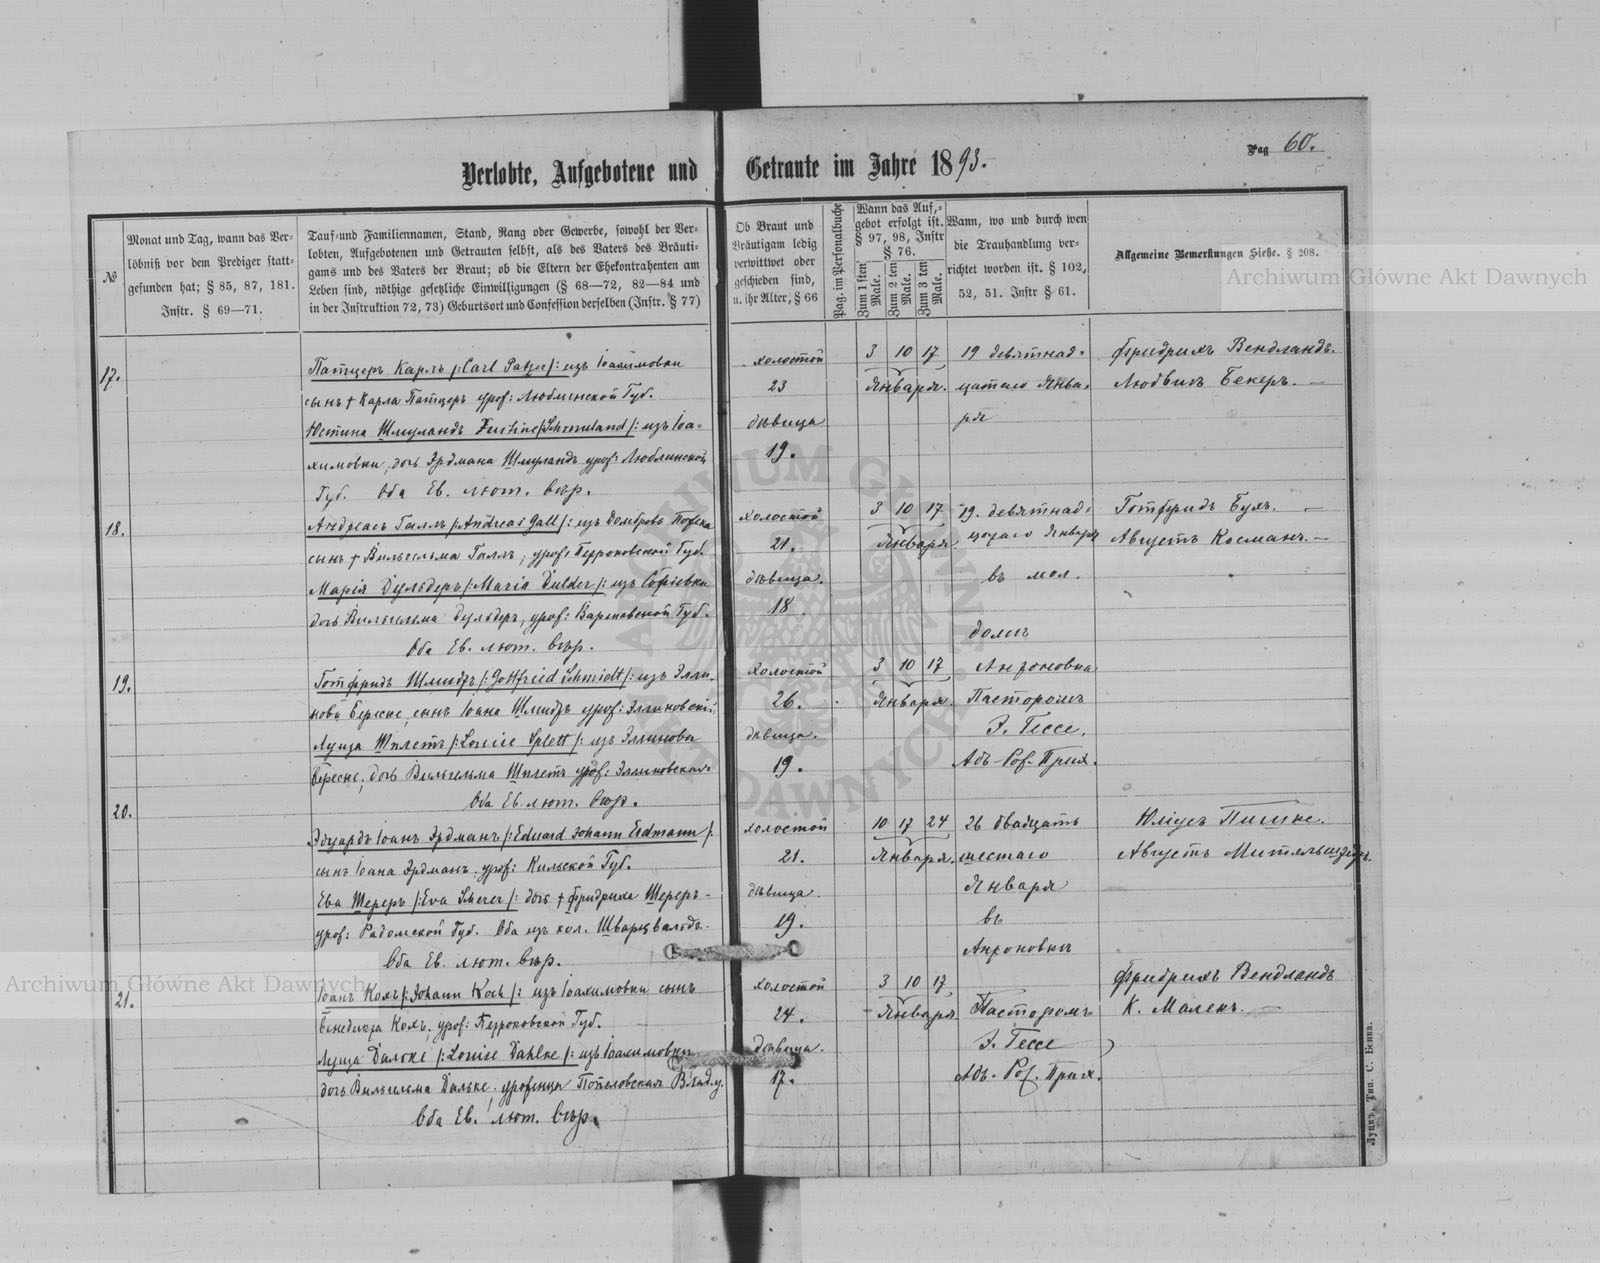 Verlobte, Aufgebotene und Getraute im Jahre 1893.
Pag 60.
№
Monat und Tag, wann das Ver-
löbniß vor dem Prediger statt-
gefunden hat; § 85, 87, 181.
Instr. § 69—71.
Tauf- und Familiennamen, Stand, Rang oder Gewerbe, sowohl der Ver-
lobten, Aufgebotenen und Getrauten selbst, als des Vaters des Bräuti-
gams und des Vaters der Braut; ob die Eltern der Ehekontrahenten am
Leben sind, nöthige gesetzliche Einwilligungen (§ 68—72, 82—84 und
in der Instruktion 72, 73) Geburtsort und Confession derselben (Instr. § 77)
Ob Braut und
Bräutigam ledig
verwittwet oder
geschieden sind,
u. ihr Alter, § 66
Pag. im Personalbuche
Wann das Auf-
gebot erfolgt ist.
§ 97, 98, Instr
§ 76.
Zum 1 sten Male.
Zum 2 ten Male.
Zum 3 ten Male.
Wann, wo und durch wen
die Trauhandlung ver-
richtet worden ist. § 102,
52, 51. Instr § 61.
Allgemeine Bemerkungen Siehe. § 208.
17.
Патцеръ Карлъ /: Carl Patzer /: изъ Іоахимовки
сынъ † Карла Патцеръ урож: Люблинской Губ.
Юстина Шмуландъ Justine /: Schmuland /: изъ Іоа-
химовки, дочь Эрдмана Шмуландъ урож: Люблинской
Губ. Оба Ев. лют. вѣр.
холостой
23
дѣвица
19.
3 10 17
Января.
19 девятнад-
цатаго Янва-
ря
Фридрихъ Вендландъ.
Людвигъ Бекеръ. —
18.
Андреасъ Галлъ /: Andreas Gall /: изъ Домброва
сынъ † Вильгельма Галлъ, урож: Петроковской Губ.
Марія Дульдеръ /: Maria Dulder /: изъ Софіевки
дочь Вильгельма Дульдеръ, урож: Варшавской Губ.
Оба Ев. лют. вѣр.
холостой
21.
дѣвица.
18.
3 10 17
Января
19. девятнад-
цатаго Января
въ мол.
домѣ
Готфридъ Бухъ. —
Августъ Косманъ. —
19.
Готфридъ Шмидтъ /: Gottfried Schmidt /: изъ
сынъ Іоана Шмидтъ урож:
Луиза Шплетъ /: Louise Splett /: изъ
дочь Вильгельма Шплетъ урож:
Оба Ев. лют. вѣр.
холостой
26.
дѣвица.
19.
3 10 17
Января.
Антоновка
Пасторомъ
Э. Гессе.
Адъ. Рож. Прих.
20.
Эдуардъ Іоанъ Эрдманъ /: Eduard Johann Erdmann /:
сынъ Іоана Эрдманъ, урож: Кѣльской Губ.
Ева Шереръ /: Eva Scherer /: дочь † Фридриха Шереръ-
урож: Радомской Губ. Оба изъ кол. Шварцвальдъ.
Оба Ев. лют. вѣр.
холостой
21.
дѣвица.
19.
10 17 24
Января.
26 двадцать
шестаго
Января
въ
Антоновкѣ
Юліусъ
Августъ
21.
Іоанъ Кохъ /: Johann Koch /: изъ Іоахимовки сынъ
Бенедикта Кохъ, урож: Петроковской Губ.
Луиза Дальке /: Louise Dahlke /: изъ Іоахимовки
дочь Вильгельма Дальке, уроженца
Оба Ев. лют. вѣр.
холостой
24.
Дѣвица.
17.
3 10 17
Января.
Пасторомъ
Э. Гессе
Адъ. Рож. Прих.
Фридрихъ Вендландъ
К. Малекъ. —
Луцкъ, Тип. С. Бенка.
Archiwum Główne Akt Dawnych
Archiwum Główne Akt Dawnych